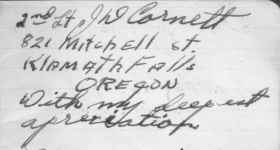 2nd Lt J D Cornett
821 Mitchell st.
Klamath Falls
OREGON
With my deepest
apreciation